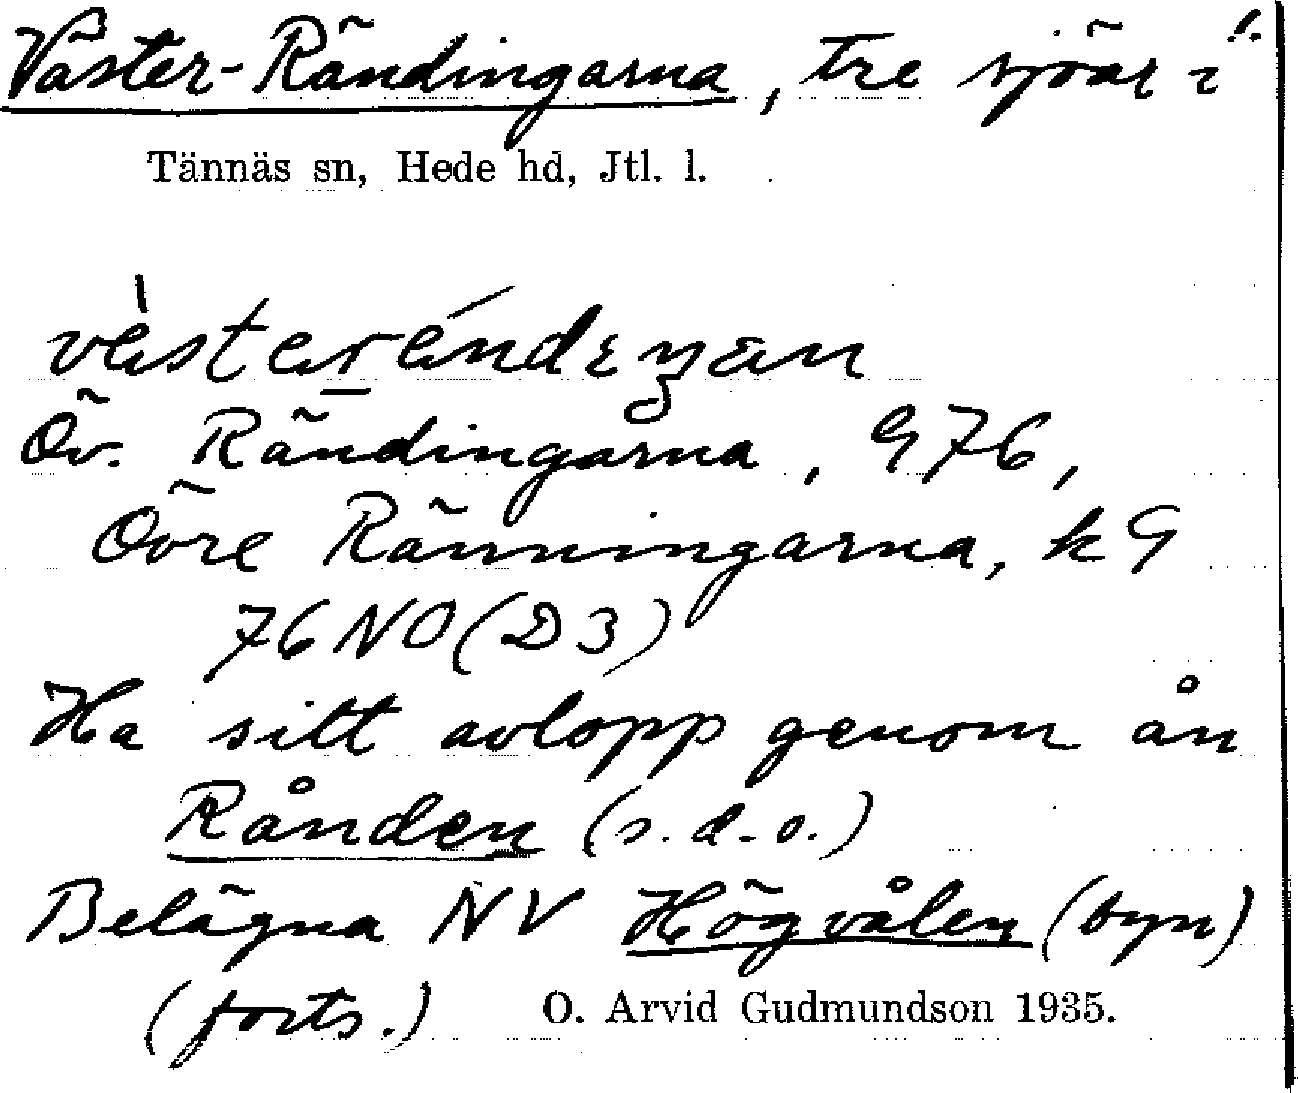 Väster-Rändingarna, tre sjöar i
Tännäs sn, Hede hd, Jtl. l.
Öv. Rändingarna, G76,
Övre Ränningarna, kG
76 NO (D3)
Ha sitt avlopp genom ån
Rånden (s.d.o.)
Belägna NV Högvålen (byn)
(forts.) O. Arvid Gudmundson 1935.